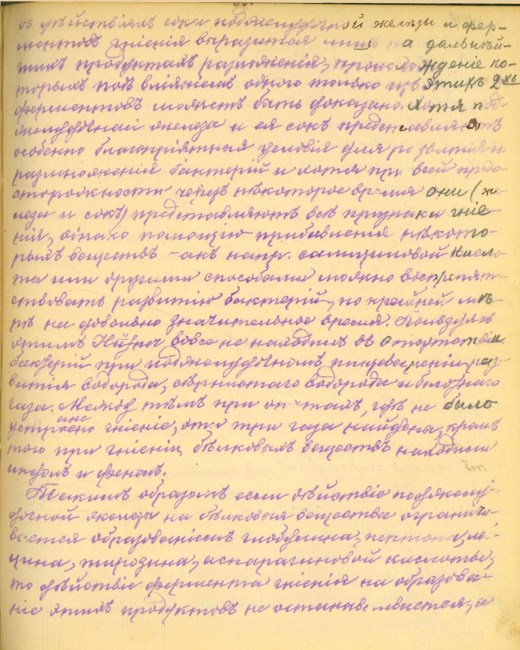 съ дѣйствіямъ сока поджелудочной железы и фер-
ментовъ гніенія выразится лишь на дальнѣй-
шихъ продуктахъ разложенія, происхожденіе ко-
торыхъ подъ вліяніемъ одного только изъ этихъ 2хъ
ферментовъ можетъ быть доказано. Хотя под-
желудочная железа и ея сокъ представляютъ
особенно благопріятныя условія для развитія и
размноженія бактерій и хотя при всей предо-
сторожности черезъ нѣкоторое время они (же-
леза и сокъ) представляютъ всѣ признаки гніе-
нія, однако помощію прибавленія нѣкото-
рыхъ веществъ какъ напр. салициловой кисло-
та или другими способами можно воспрепят-
ствовать развитію бактерій, по крайней мѣ-
рѣ на довольно значительное время. Пользуясь
этимъ вовсе не находилъ въ отсутствіи
бактерій при поджелудочномъ пищевареніи раз-
витія водорода, сѣрнистаго водорода и болотнаго
газа. Между тѣмъ при опытахъ, гдѣ не было
устранено гніеніе, эти три газа найдены, кромѣ
того при гніеніи бѣлковыхъ веществъ находили
индолъ и фенолъ.
Такимъ образомъ если дѣйствіе поджелу-
дочной железы на бѣлковыя вещества ограничи-
вается образованіемъ глобулина, пептона, лей-
цина, тирозина, аспарагиновой кислоты,
то дѣйствіе фермента гніенія на образова-
ніе этихъ продуктовъ не останавливается, а